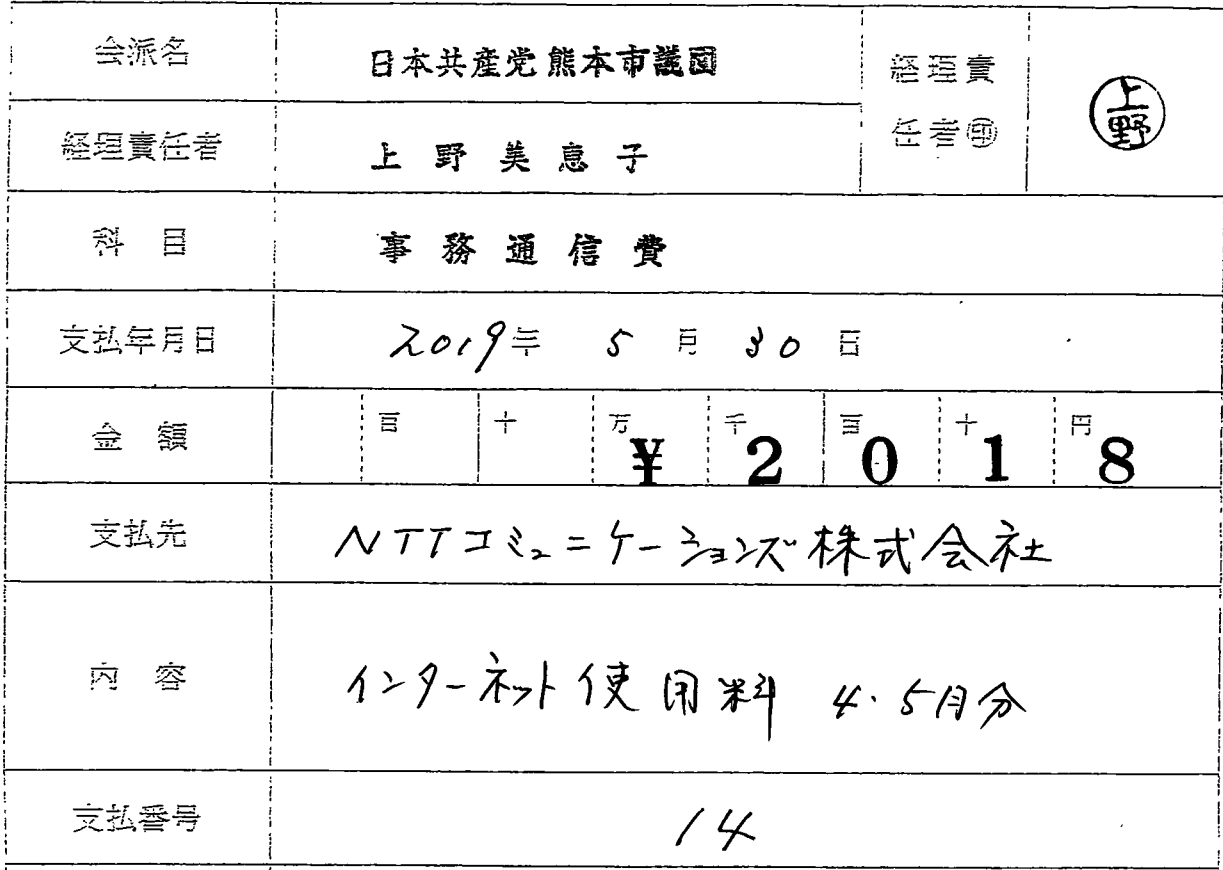 会派名 日本共産党熊本市議団 経理責任者㊞ 上野
経理責任者 上野美恵子
科目 事務通信費
支払年月日 2019年 5月 30日
金額 百 十 万 千 百 十 円
¥2018
支払先 NTTコミュニケーションズ株式会社
内容 インターネット使用料 4・5月分
支払番号 14